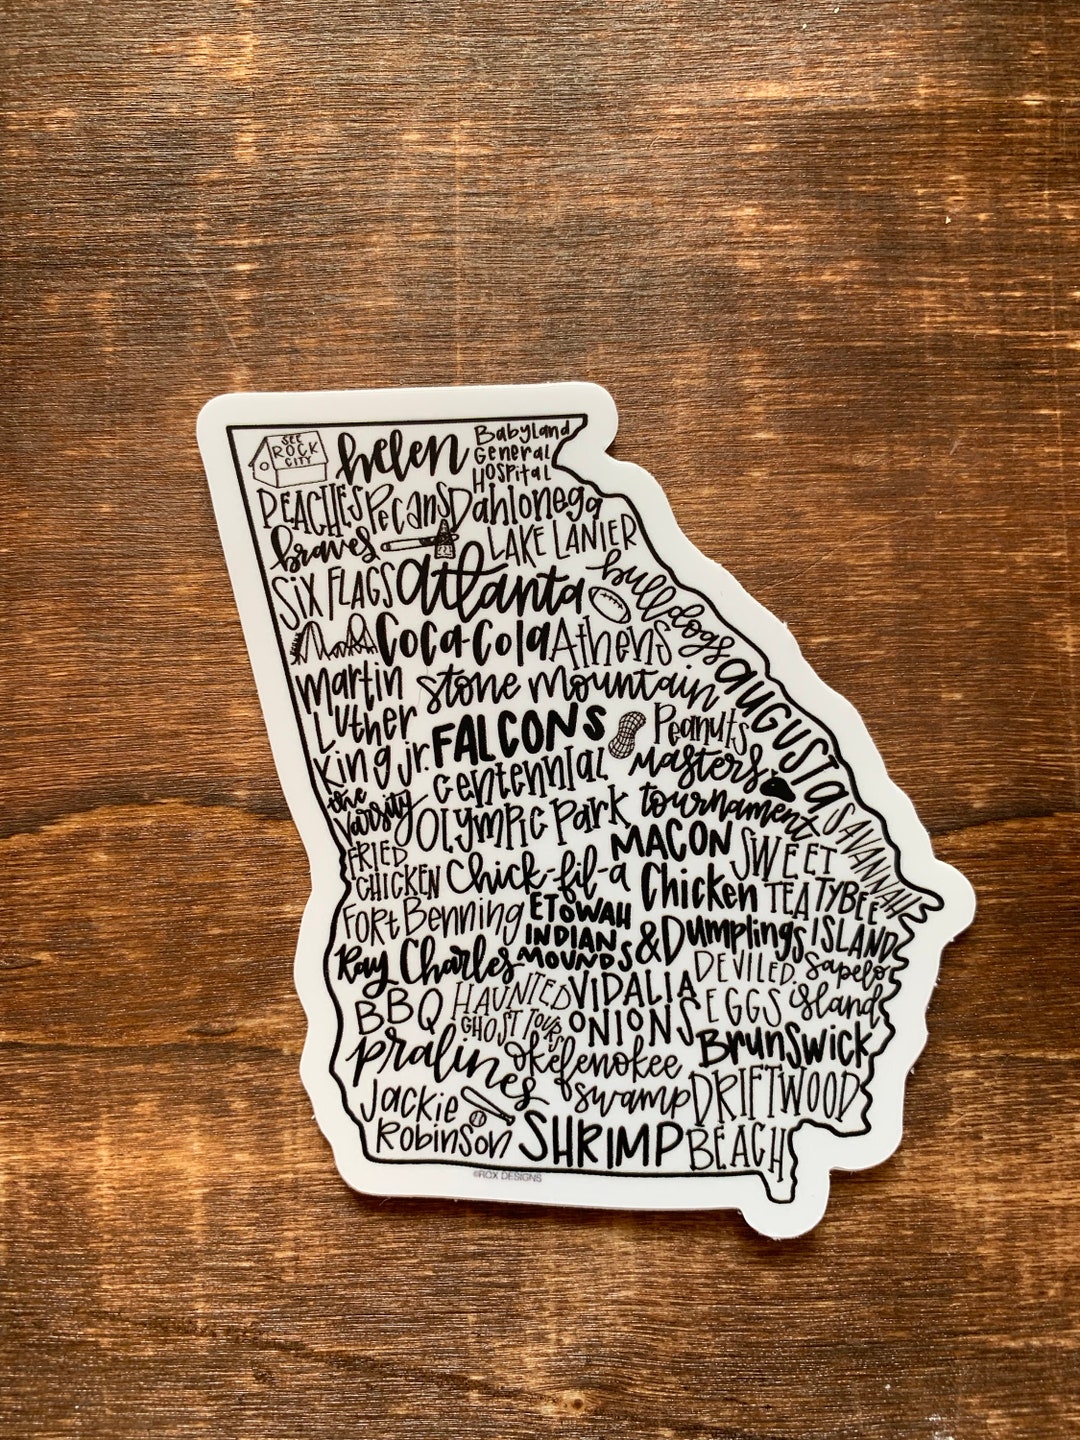 SEE
ROCK
CITY
helen
Babyland
General
Hospital
PEACHES
Pecans
Dahlonega
braves
LAKE LANIER
SIX FLAGS
atlanta
bulldogs
Coca-Cola
Athens
martin
Luther
King jr.
stone mountain
augusta
FALCONS
Peanuts
centennial
Olympic Park
Masters
tournament
the
varsity
SAVANNAH
MACON
SWEET
TEA
FRIED
CHICKEN
Chick-fil-a
Chicken
&Dumplings
TYBEE
ISLAND
Fort Benning
ETOWAH
INDIAN
MOUNDS
Ray Charles
DEVILED
EGGS
Sapelo
island
BBQ
HAUNTED
GHOST TOURS
VIDALIA
ONIONS
Brunswick
pralines
okefenokee
swamp
DRIFTWOOD
BEACH
Jackie
Robinson
SHRIMP
©ROX DESIGNS